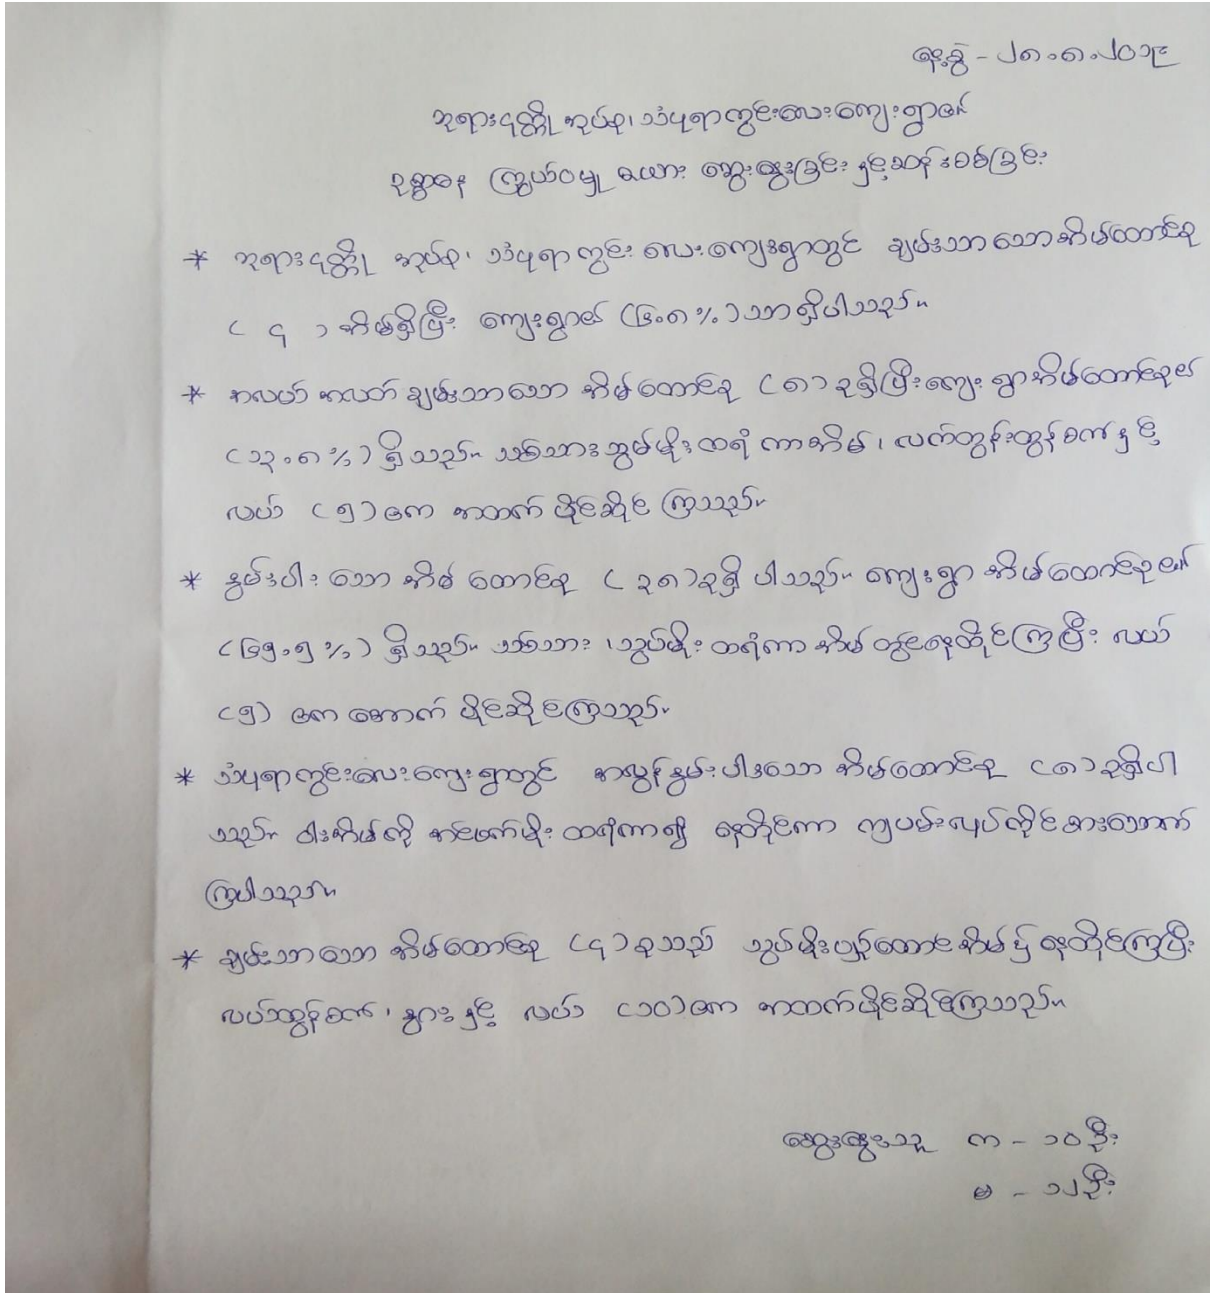 ရက်စွဲ - ၂၈.၈.၂၀၁၉
ဘုရားငုတ္တို အုပ်စု၊ သံပုရာကွင်းလေးကျေးရွာ၏
ဥစ္စာဓန ကြွယ်ဝမှု ဇယား ဆွေးနွေးခြင်း နှင့်ဆန်းစစ်ခြင်း
* ဘုရားငုတ္တို အုပ်စု၊ သံပုရာကွင်း လေးကျေးရွာတွင် ချမ်းသာသောအိမ်ထောင်စု
( ၄ ) အိမ်ရှိပြီး ကျေးရွာ၏ (၆.၈%) သာရှိပါသည်။
* အလယ် အလတ် ချမ်းသာသော အိမ်ထောင်စု (၈) ခုရှိပြီးကျေး ရွာအိမ်ထောင်စု၏
(၁၃.၈%) ရှိသည်။ သစ်သားသွပ်မိုးထရံ ကာအိမ်၊ လက်တွန်းထွန်စက်နှင့်
လယ် (၅) ဧက အထက် ပိုင်ဆိုင် ကြသည်။
* နွမ်းပါး သော အိမ် ထောင်စု (၃၈) ခုရှိ ပါသည်။ ကျေးရွာ အိမ်ထောင်စု၏
(၆၅.၅%) ရှိသည်။ သစ်သား ၊သွပ်မိုး ထရံကာ အိမ် တွင်နေထိုင်ကြပြီး လယ်
(၅) ဧက အောက် ပိုင်ဆိုင်ကြသည်။
* သံပုရာကွင်းလေးကျေးရွာတွင် အလွန်နွမ်းပါးသော အိမ်ထောင်စု (၈) ခုရှိပါ
သည်။ ဝါးအိမ်ကို အင်ဖက်မိုး ထရံကာ၍ နေထိုင်ကာ ကျပမ်းလုပ်ကိုင်စားသောက်
ကြပါသည်။
* ချမ်းသာသော အိမ်ထောင်စု (၄) ခုသည် သွပ်မိုးပျဉ်ထောင်အိမ်၌ နေထိုင်ကြပြီး
လယ်ထွန်စက်၊ နွား နှင့် လယ် (၁၀) ဧက အထက်ပိုင်ဆိုင်ကြသည်။
ဆွေးနွေးသူ က - ၁၀ဦး
မ - ၁၂ဦး